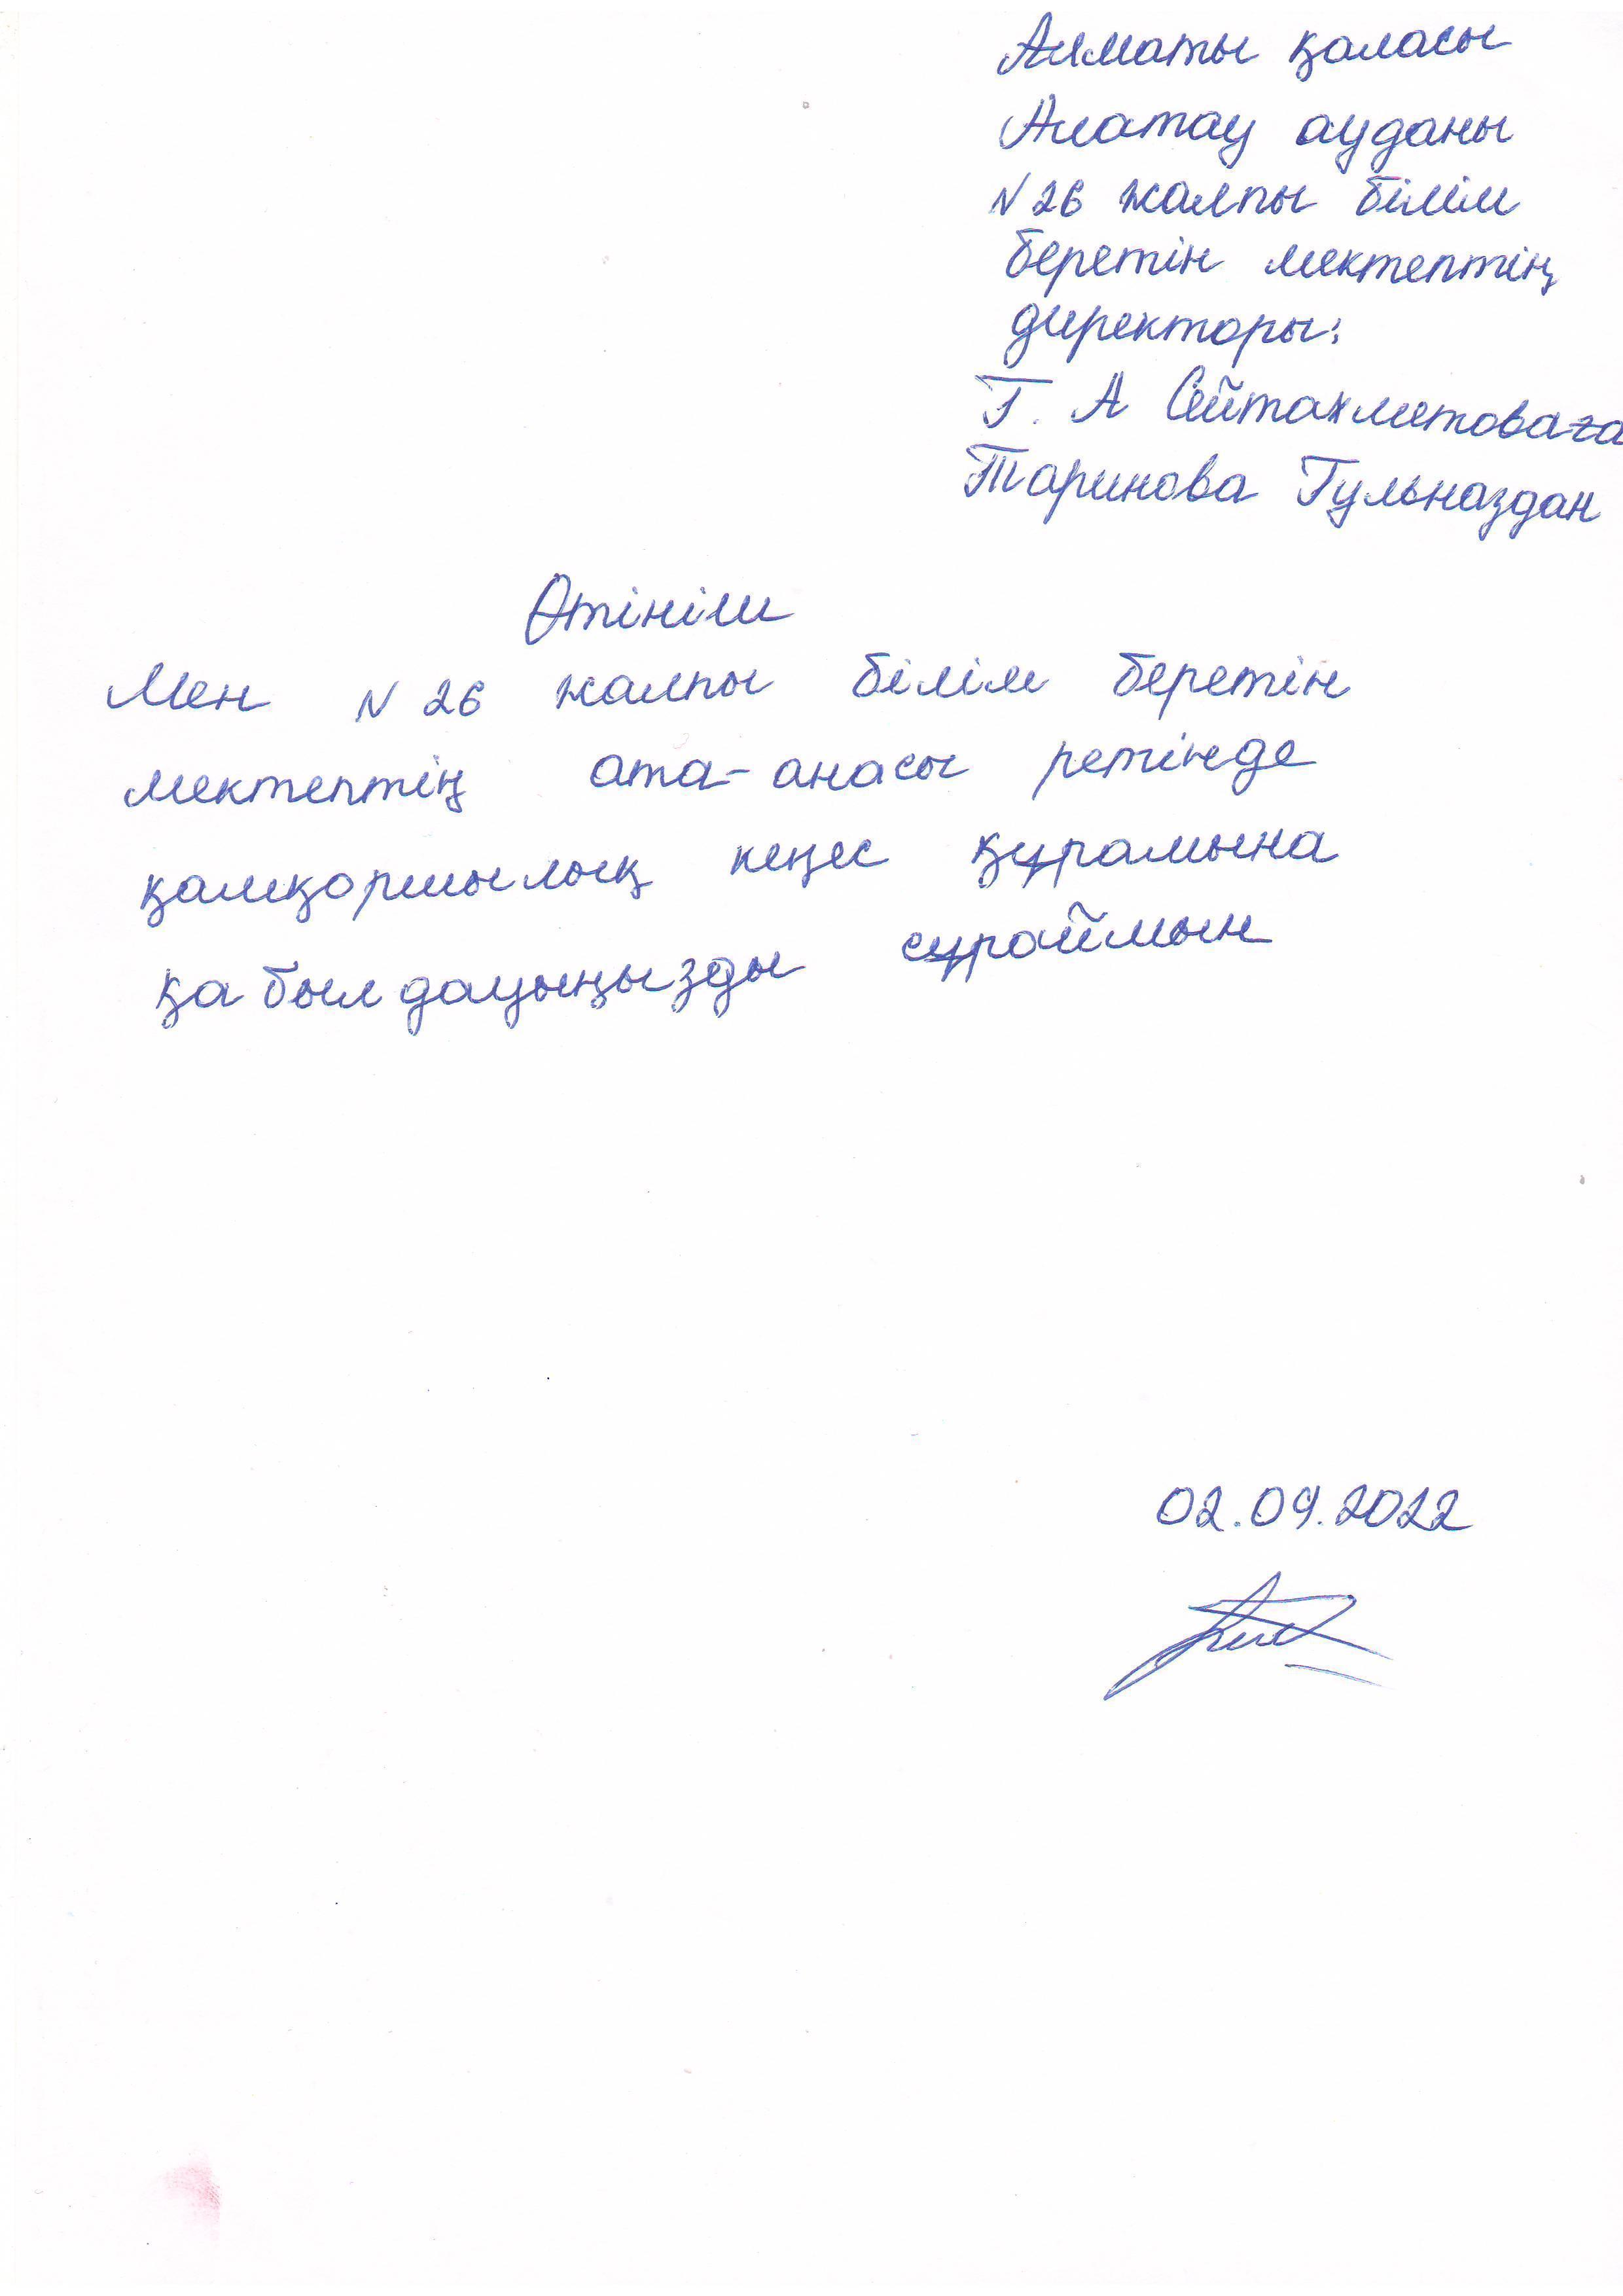 Алматы қаласы
Алатау ауданы
N 26 жалпы білім
беретін мектептің
директоры:
Г. А Сейтахметоваға
Таринова Гульназдан
Өтініш
Мен N 26 жалпы білім беретін
мектептің ата-анасы ретінде
қамқоршылық кеңес құрамына
қабылдауыңызды сұраймын
02.09.2022